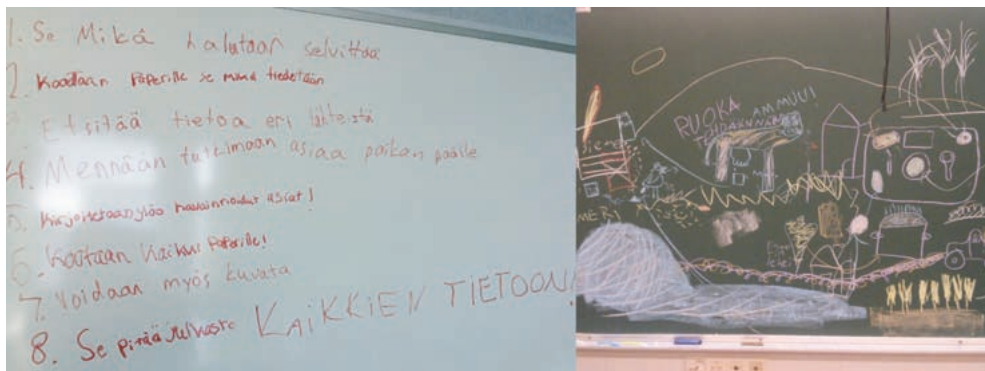 1. Se Mikä halutaan selvittää
2. Kootaan Paperille se mikä tiedetään
3. Etsitää tietoa eri lähteistä
4. Mennään tutkimaan asiaa paikan päälle
5. Kirjoitetaan ylös havainnoidut asiat!
6. Kootaan Kaikki Paperille!
7. Voidaan myös kuvata
8. Se pitää Julkaista KAIKKIEN TIETOON!
RUOKA
AMMUU!
MERI